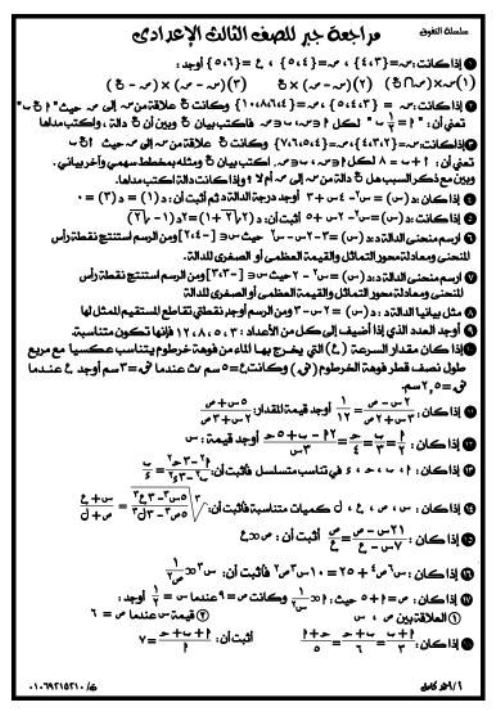 سلسلة التفوق
مراجعة جبر للصف الثالث الإعدادى
❶ إذا كانت: س = {٣،٤} ، ص = {٥،٤} ، ع = {٥،٦} أوجد :
(١) س × (ص ∩ ع) (٢) (س - ص) × ع (٣) (س - ص) × (ص - ع)
❷ إذا كانت: س = {٣،٤،٥} ، ص = {٤،٦،٨،١٠} وكانت ع علاقة من س إلى ص حيث "أ ع ب"
تعنى أن : "أ = ١/٢ ب" لكل أ ∈ س، ب ∈ ص فاكتب بيان ع وبين أن ع دالة ، واكتب مداها
❸ إذا كانت: س = {٢،٣،٤} ، ص = {٤،٥،٦،٧} وكانت ع علاقة من س إلى ص حيث أ ع ب
تعنى أن : أ + ب = ٨ لكل أ ∈ س، ب ∈ ص. اكتب بيان ع ومثله بمخطط سهمي وآخر بياني .
وبين مع ذكر السبب هل ع دالة من س إلى ص أم لا ؟ وإذا كانت دالة اكتب مداها.
❹ إذا كان : د (س) = س² - ٤س + ٣ أوجد درجة الدالة د ثم أثبت أن : د (١) = د (٣) = ٠
❺ إذا كانت : د (س) = س² - ٢س + ٥ أثبت أن : د (١ + √٢) = د (١ - √٢)
❻ ارسم منحنى الدالة د: د (س) = ٣ - ٢س - س² حيث س ∈ [-٤،٢] ومن الرسم استنتج نقطة رأس
المنحنى ومعادلة محور التماثل والقيمة العظمى أو الصغرى للدالة.
❼ ارسم منحنى الدالة د: د (س) = س² - ٢ حيث س ∈ [-٣،٣] ومن الرسم استنتج نقطة رأس
المنحنى ومعادلة محور التماثل والقيمة العظمى أو الصغرى للدالة
❽ مثل بيانيا الدالة د : د (س) = ٢س - ٣ ومن الرسم أوجد نقطتي تقاطع المستقيم الممثل لها
❾ أوجد العدد الذي إذا أضيف إلى كل من الأعداد : ٣ ، ٥ ، ٨ ، ١٢ فإنها تكون متناسبة.
❿ إذا كان مقدار السرعة (ع) التي يخرج بها الماء من فوهة خرطوم يتناسب عكسيا مع مربع
طول نصف قطر فوهة الخرطوم (نق) وكانت ع = ٥ سم/ث عندما نق = ٣ سم أوجد ع عندما
نق = ٢,٥ سم.
⓫ إذا كان : (٢س - ص)/(٣س + ٢ص) = ١/١٢ أوجد قيمة المقدار: (٥س + ص)/(٢س + ٣ص)
⓬ إذا كان : أ/٢ = ب/٣ = ج/٤ = (٢أ - ب + ٥ج)/(٣س) أوجد قيمة : س
⓭ إذا كان : أ ، ب ، ج ، د في تناسب متسلسل فأثبت أن: (أ² - ٣ج²)/(ب² - ٣د²) = ب/د
⓮ إذا كان : س ، ص ، ع ، ل كميات متناسبة فأثبت أن: ∛((٥س³ - ٣ع³)/(٥ص³ - ٣ل³)) = (س + ع)/(ص + ل)
⓯ إذا كان : (٢١س - ص)/(٧س - ع) = ص/ع أثبت أن : ص ∝ ع
⓰ إذا كان : س⁶ص⁴ + ٢٥ = ١٠س³ص² فأثبت أن: س³ ∝ ١/ص²
⓱ إذا كان : ص = أ + ٥ حيث : أ ∝ ١/س² وكانت ص = ٩ عندما س = ١/٢ أوجد :
① العلاقة بين ص ، س ② قيمة س عندما ص = ٦
⓲ إذا كان : (أ + ب)/٣ = (ب + ج)/٦ = (ج + أ)/٥ أثبت أن : (أ + ب + ج)/أ = ٧
أ/ أحمد كامل
ت/ ٠١٠٦٩٢١٥٢١٠